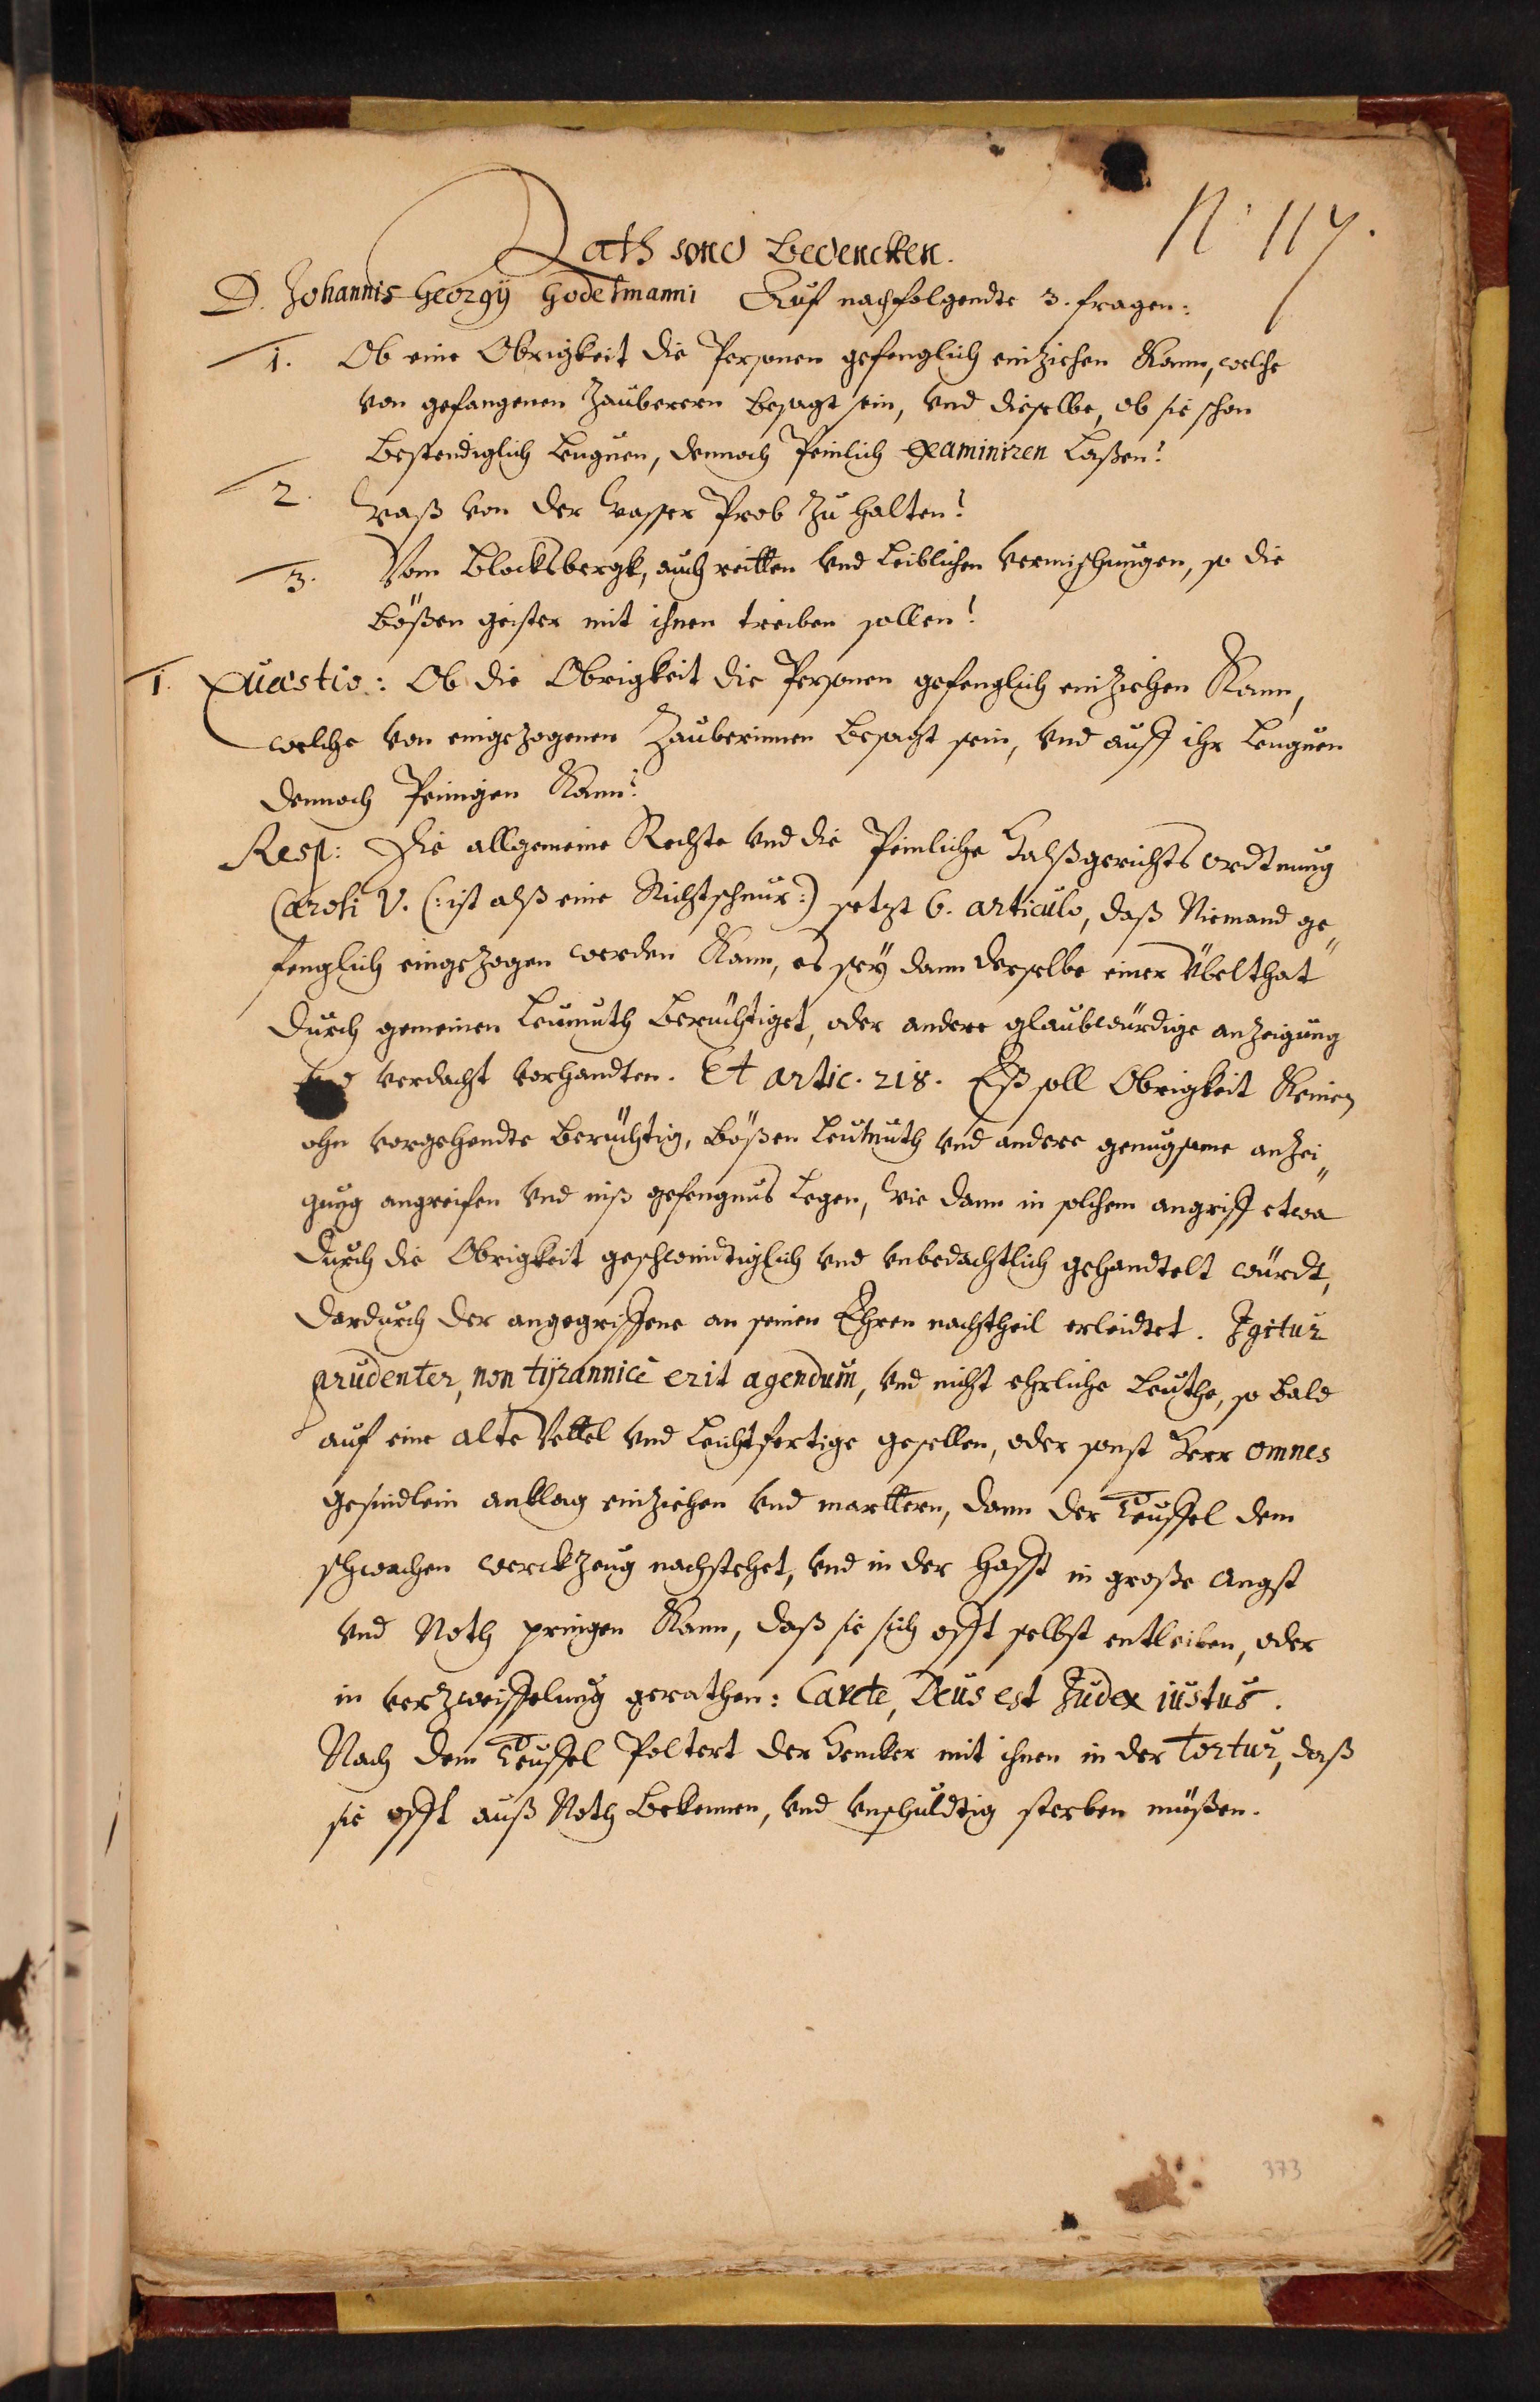 N: 117.
Rath vnd Bedencken.
D. Johannis Georgÿ Godelmanni Auf nachfolgendte 3. fragen:
1. Ob eine Obrigkeit die Personen gefenglich einziehen Kann, welche
von gefangenen Zauberern besagt sein, vnd dieselbe, ob sie schon
bestendiglich leugnen, dennoch Peinlich Examiniren laßen?
2. Waß von der Wasser Prob zu halten?
3. Vom Blocksbergk, auch reitten vnd leiblichen vermischungen, so die
bößen geister mit ihnen treiben sollen?
1. Quæstio: Ob die Obrigkeit die Personen gefenglich einziehen Kann,
welche von eingezogenen Zauberinnen besagt sein, vnd auff ihr leugnen
dennoch Peinigen Kann?
Resp: Die allgemeine Rechte vnd die Peinliche Halßgerichts ordtnung
Caroli V. (: ist alß eine Richtschnur:) setzt 6. articulo, daß Niemand ge"
fenglich eingezogen werden Kann, es seÿ dann derselbe einer Übelthat
durch gemeinen Leumuth berüchtiget, oder andere glaubwürdige anzeigung
vnd verdacht vorhandten. Et artic. 218. Eß soll Obrigkeit Keinen
ohn vorgehendte berüchtig, bößen Leutmuth vnd andere genugsame anzei"
gung angreifen vnd inß gefengnus legen, Wie dann in solchem angriff etwa
durch die Obrigkeit geschwindtiglich vnd vnbedachtlich gehandtelt würdt,
dardurch der angegriffene an seinen Ehren nachtheil erleidtet. Igitur
prudenter, non tÿrannicè erit agendum, vnd nicht ehrliche Leuthe, so bald
auf eine alte Vettel vnd leichtfertige gesellen, oder sonst Herr omnes
gesindlein anklag einziehen vnd marttern, dann der Teuffel dem
schwachen werckzeug nachstehet, vnd in der Hafft in große Angst
vnd Noth pringen Kann, daß sie sich offt selbst entleiben, oder
in verzweiffelung gerathen: Cavete, Deus est Judex iustus.
Nach dem Teuffel Poltert der Hencker mit ihnen in der Tortur, daß
sie offt auß Noth bekennen, vnd vnschuldtig sterben müßen.
373